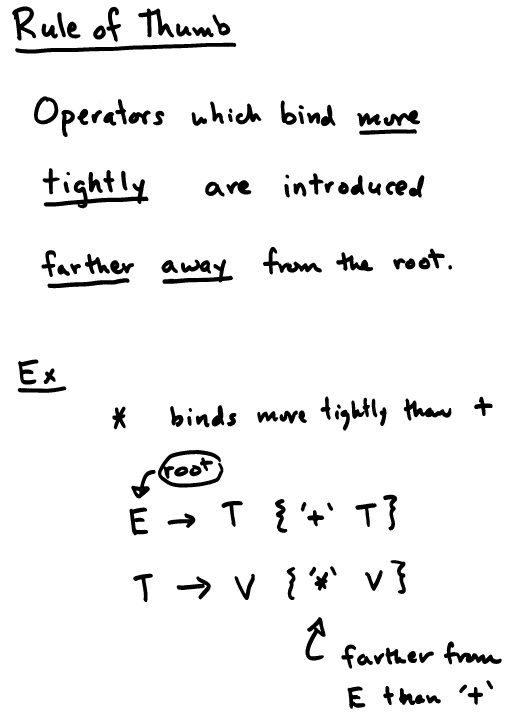 Rule of Thumb
Operators which bind more
tightly are introduced
farther away from the root.
Ex
* binds more tightly than +
root
E → T {'+' T}
T → V {'*' V}
farther from
E than '+'